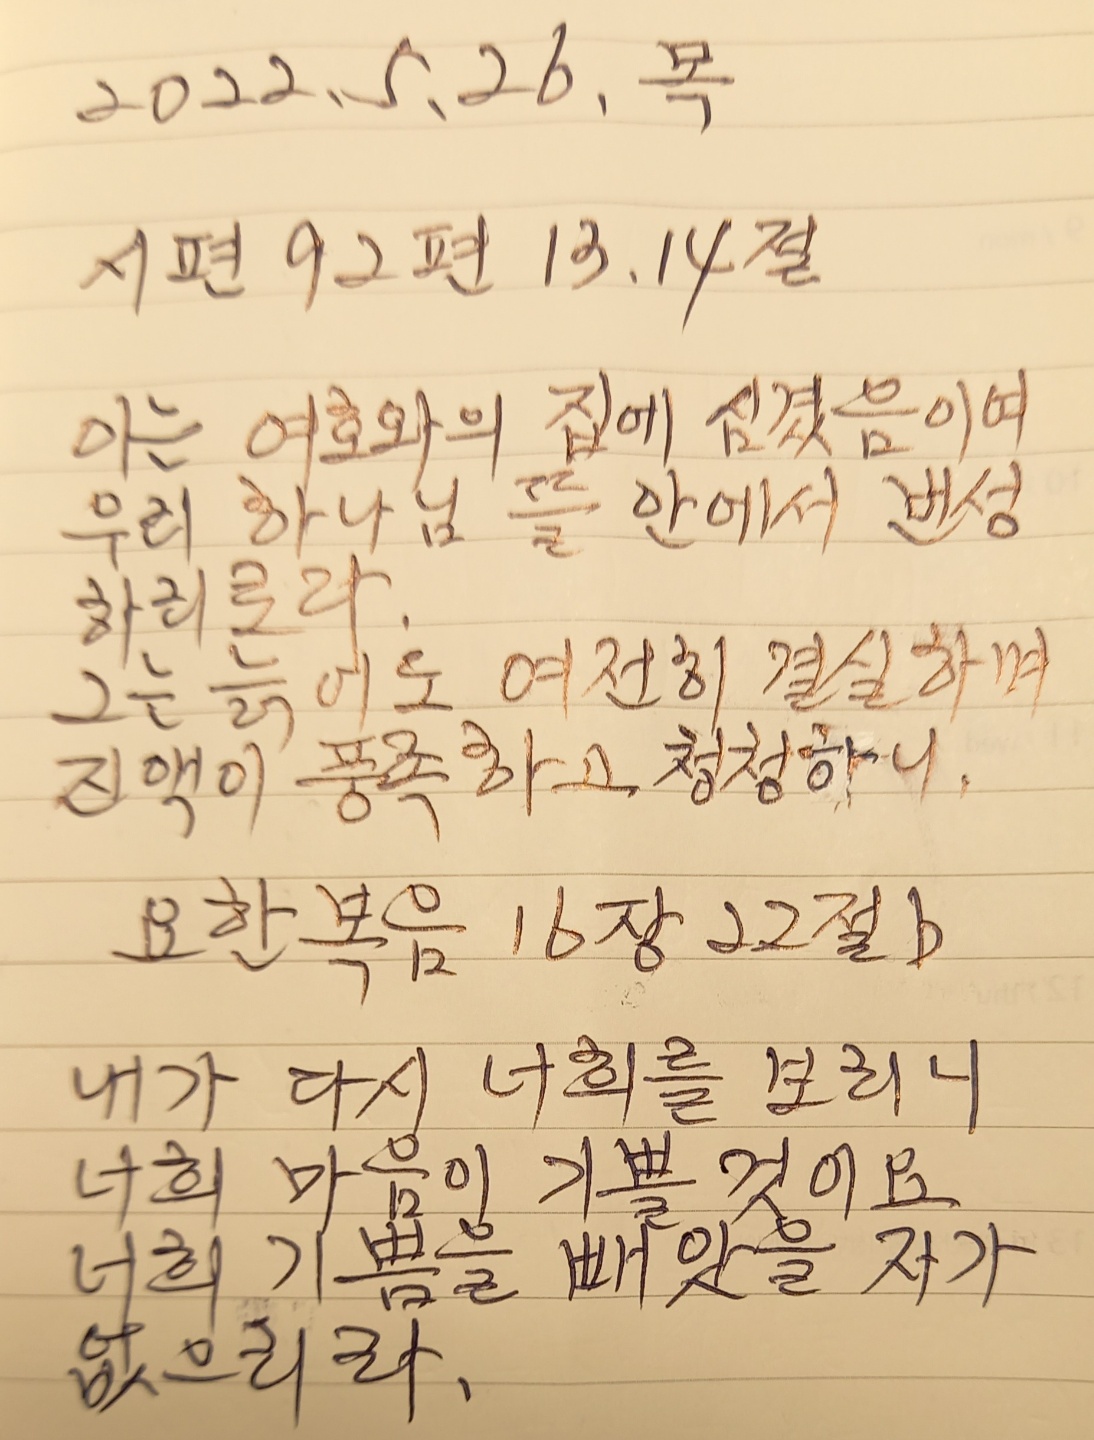 2022.5.26. 목
시편 92편 13.14절
이는 여호와의 집에 심겼음이여
우리 하나님 뜰 안에서 번성
하리로다.
그는 늙어도 여전히 결실하며
진액이 풍족하고 청청하니.
요한복음 16장 22절b
내가 다시 너희를 보리니
너희 마음이 기쁠 것이요
너희 기쁨을 빼앗을 자가
없으리라.